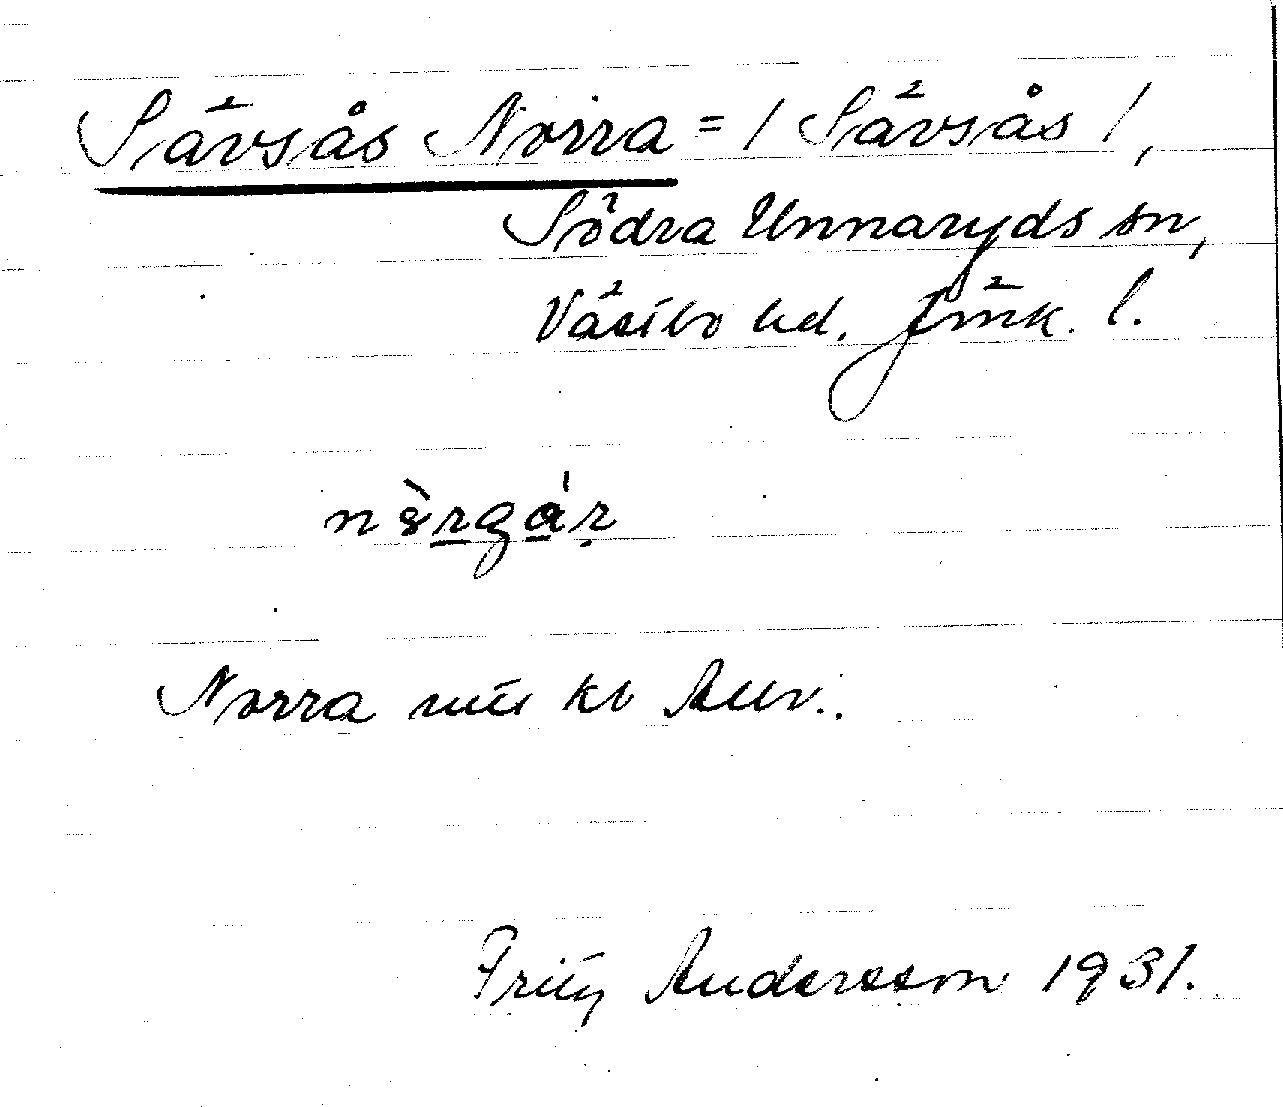 Sävsås Norra = / Sävsås /,
Södra Unnaryds sn,
Västbo hd. Jönk. l.
Norra
Fritz Andersson 1931.